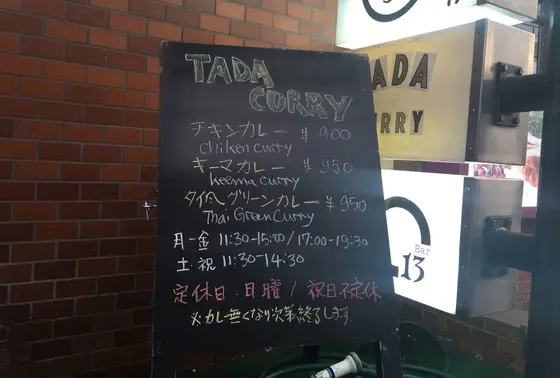 TADA
CURRY
チキンカレー ¥900
Chiken curry
キーマカレー ¥950
keema curry
タイ風グリーンカレー ¥950
Thai Green Curry
月-金 11:30-15:00/17:00-19:30
土・祝 11:30-14:30
定休日 日曜/祝日不定休
※カレー無くなり次第終了します
TADA
CURRY
Bar
13